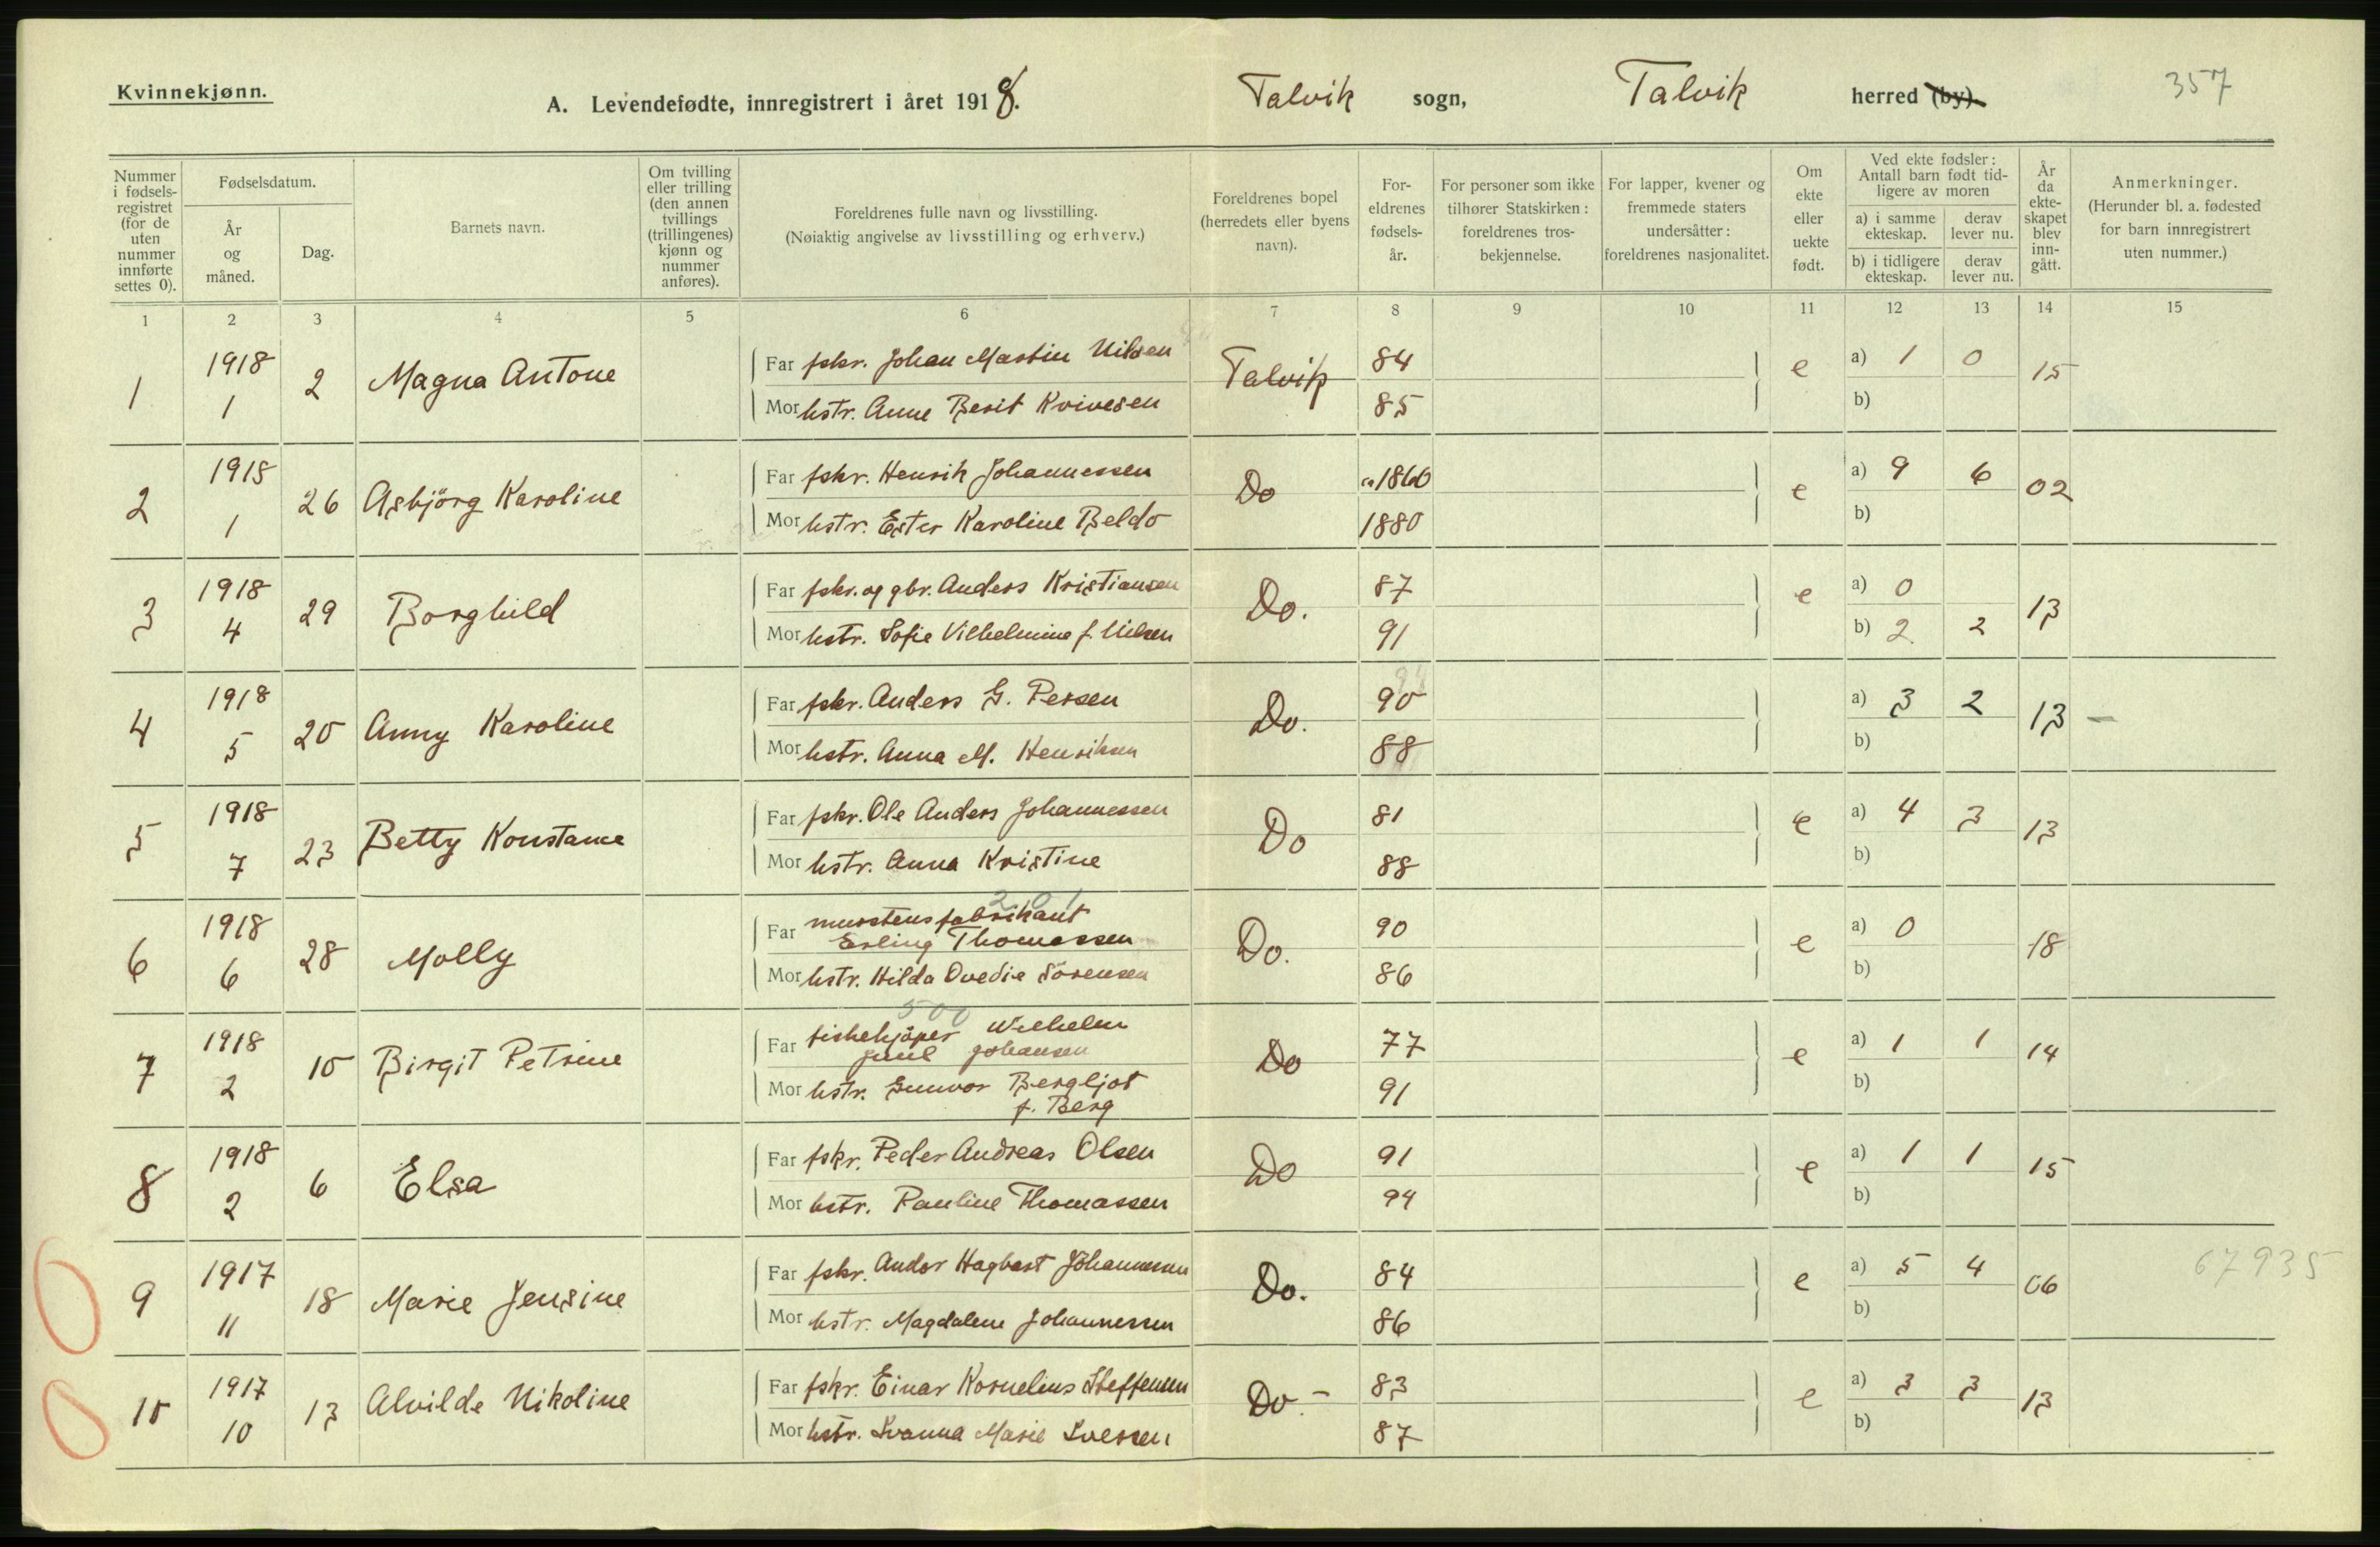 Kvinnekjønn.
A. Levendefødte, innregistrert i året 1918. Talvik sogn, Talvik herred (by). 357
Nummer i fødsels-registret (for de uten nummer innførte settes 0).
Fødselsdatum.
År og måned.
Dag.
Barnets navn.
Om tvilling eller trilling (den annen tvillings (trillingenes) kjønn og nummer anføres).
Foreldrenes fulle navn og livsstilling.
(Nøiaktig angivelse av livsstilling og erhverv.)
Foreldrenes bopel (herredets eller byens navn).
For-eldrenes fødsels-år.
For personer som ikke tilhører Statskirken: foreldrenes tros-bekjennelse.
For lapper, kvener og fremmede staters undersåtter: foreldrenes nasjonalitet.
Om ekte eller uekte født.
Ved ekte fødsler: Antall barn født tid-ligere av moren
a) i samme ekteskap. derav lever nu.
b) i tidligere ekteskap. derav lever nu.
År da ekte-skapet blev inn-gått.
Anmerkninger.
(Herunder bl. a. fødested for barn innregistrert uten nummer.)
1 2 3 4 5 6 7 8 9 10 11 12 13 14 15
1 1918 1 2 Magna Antone
Far fskr. Johan Martin Nilsen Talvik 84 e a) 1 0 15
Mor hstr. Anne Berit Kvivesen 85 b)
2 1918 1 26 Asbjörg Karoline
Far fskr. Henrik Johannessen Do ca 1860 e a) 9 6 02
Mor hstr. Ester Karoline Beldo 1880 b)
3 1918 4 29 Borghild
Far fskr. og gbr. Anders Kristiansen Do. 87 e a) 0 13
Mor hstr. Sofie Vilhelmine f. Nilsen 91 b) 2 2
4 1918 5 20 Anny Karoline
Far fskr. Anders G. Persen Do. 90 a) 3 2 13 —
Mor hstr. Anna M. Henriksen 88 b)
5 1918 7 23 Betty Konstanse
Far fskr. Ole Anders Johannessen Do 81 e a) 4 3 13
Mor hstr. Anna Kristine 88 b)
201
6 1918 6 28 Molly
Far murstensfabrikant
Erling Thomassen Do. 90 e a) 0 18
Mor hstr. Hilda Ovedie Sörensen 86 b)
500
7 1918 2 10 Birgit Petrine
Far fiskekjöper Wilhelm
Juul Johansen Do 77 e a) 1 1 14
Mor hstr. Gunvor Bergljot
f. Berg 91 b)
8 1918 2 6 Elsa
Far fskr. Peder Andreas Olsen Do 91 e a) 1 1 15
Mor hstr. Pauline Thomassen 94 b)
0 9 1917 11 18 Marie Jensine
Far fskr. Andor Hagbart Johannessen Do. 84 e a) 5 4 06 67935
Mor hstr. Magdalene Johannessen 86 b)
0 10 1917 10 13 Alvilde Nikoline
Far fskr. Einar Kornelius Steffensen Do.- 83 e a) 3 3 13
Mor hstr. Ivanna Marie Iversen 87 b)